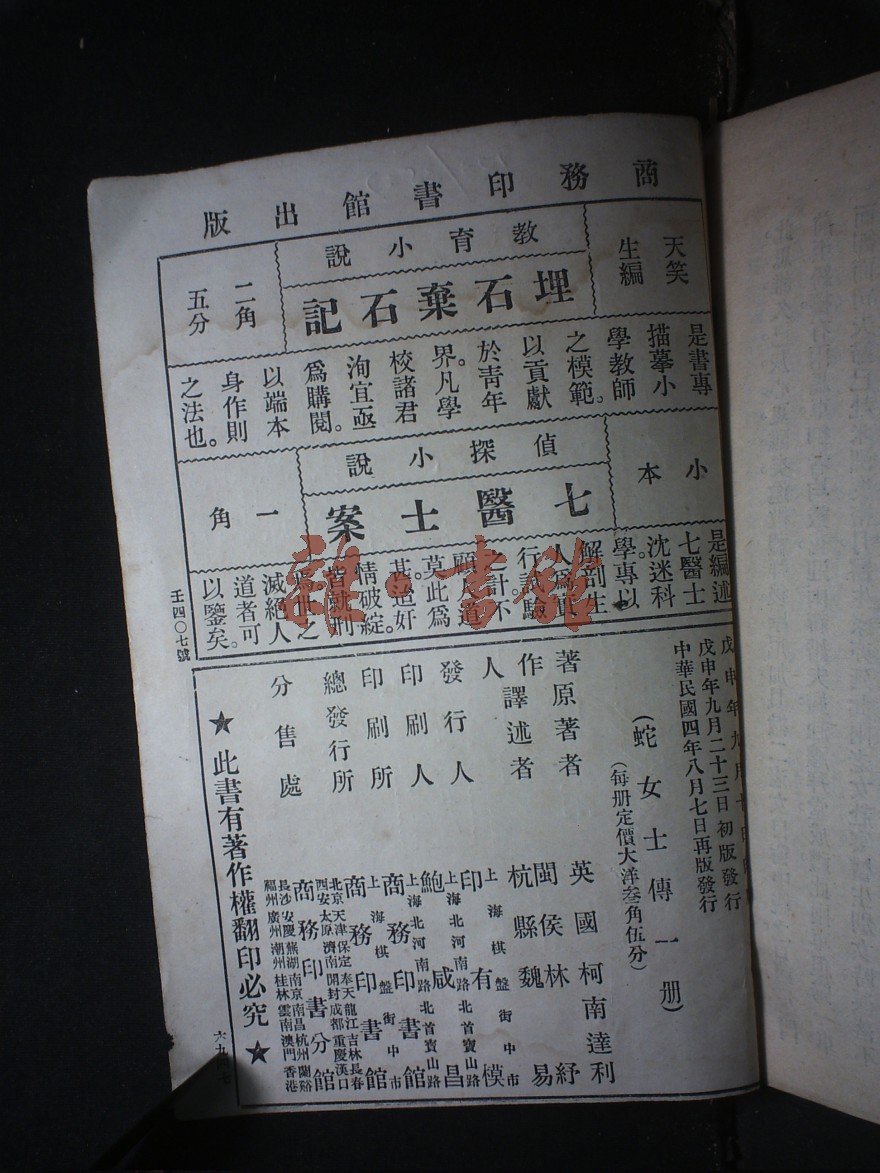 商務印書館出版
天笑
生編
教育小說
埋石棄石記
二角
五分
是書專
描摹小
學教師
之模範。
以貢獻
於靑年
界。凡學
校諸君
洵宜亟
爲購閱。
以端本
身作則
之法也。
小本
偵探小說
七醫士案
一角
是編述
七醫士
沈迷科
學專以
解剖生
人爲眞
行試驗
之計。不
顧人道
莫此爲
甚。迨奸
情破綻。
皆就刑
爲世之
滅絕人
道者可
以鑒矣。
壬四〇七號
戊申年九月
戊申年九月二十三日初版發行
中華民國四年八月七日再版發行
(蛇女士傳一册)
(每册定價大洋叁角伍分)
原著者 英國柯南達利
著作人
譯述者 閩侯林紓
杭縣魏易
發行人 印有模
上海棋盤街中市
印刷人 鮑咸昌
上海北河南路北首寶山路
印刷所 商務印書館
上海北河南路北首寶山路
總發行所 商務印書館
上海棋盤街中市
分售處 商務印書分館
北京天津保定奉天龍江吉林長春
西安太原濟南開封成都重慶漢口
長沙安慶蕪湖南京南昌杭州蘭谿
福州廣州潮州桂林雲南澳門香港
★此書有著作權翻印必究★
雜·書館